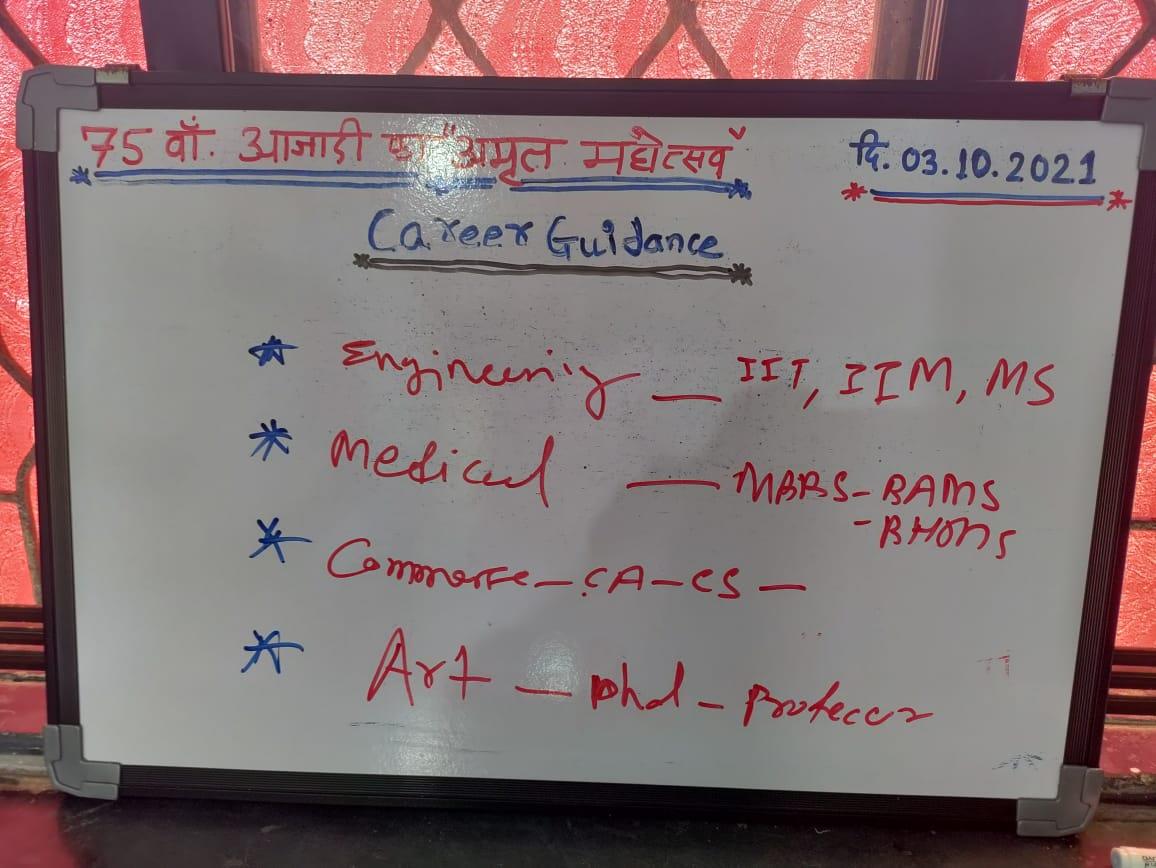 75 वाँ. आजादी का "अमृत महोत्सव"
दि. 03.10.2021
Career Guidance
* Engineering — IIT, IIM, MS
* Medical — MBBS - BAMS
- BHOMS
* Commerce - CA - CS -
* Art - phd - Professor